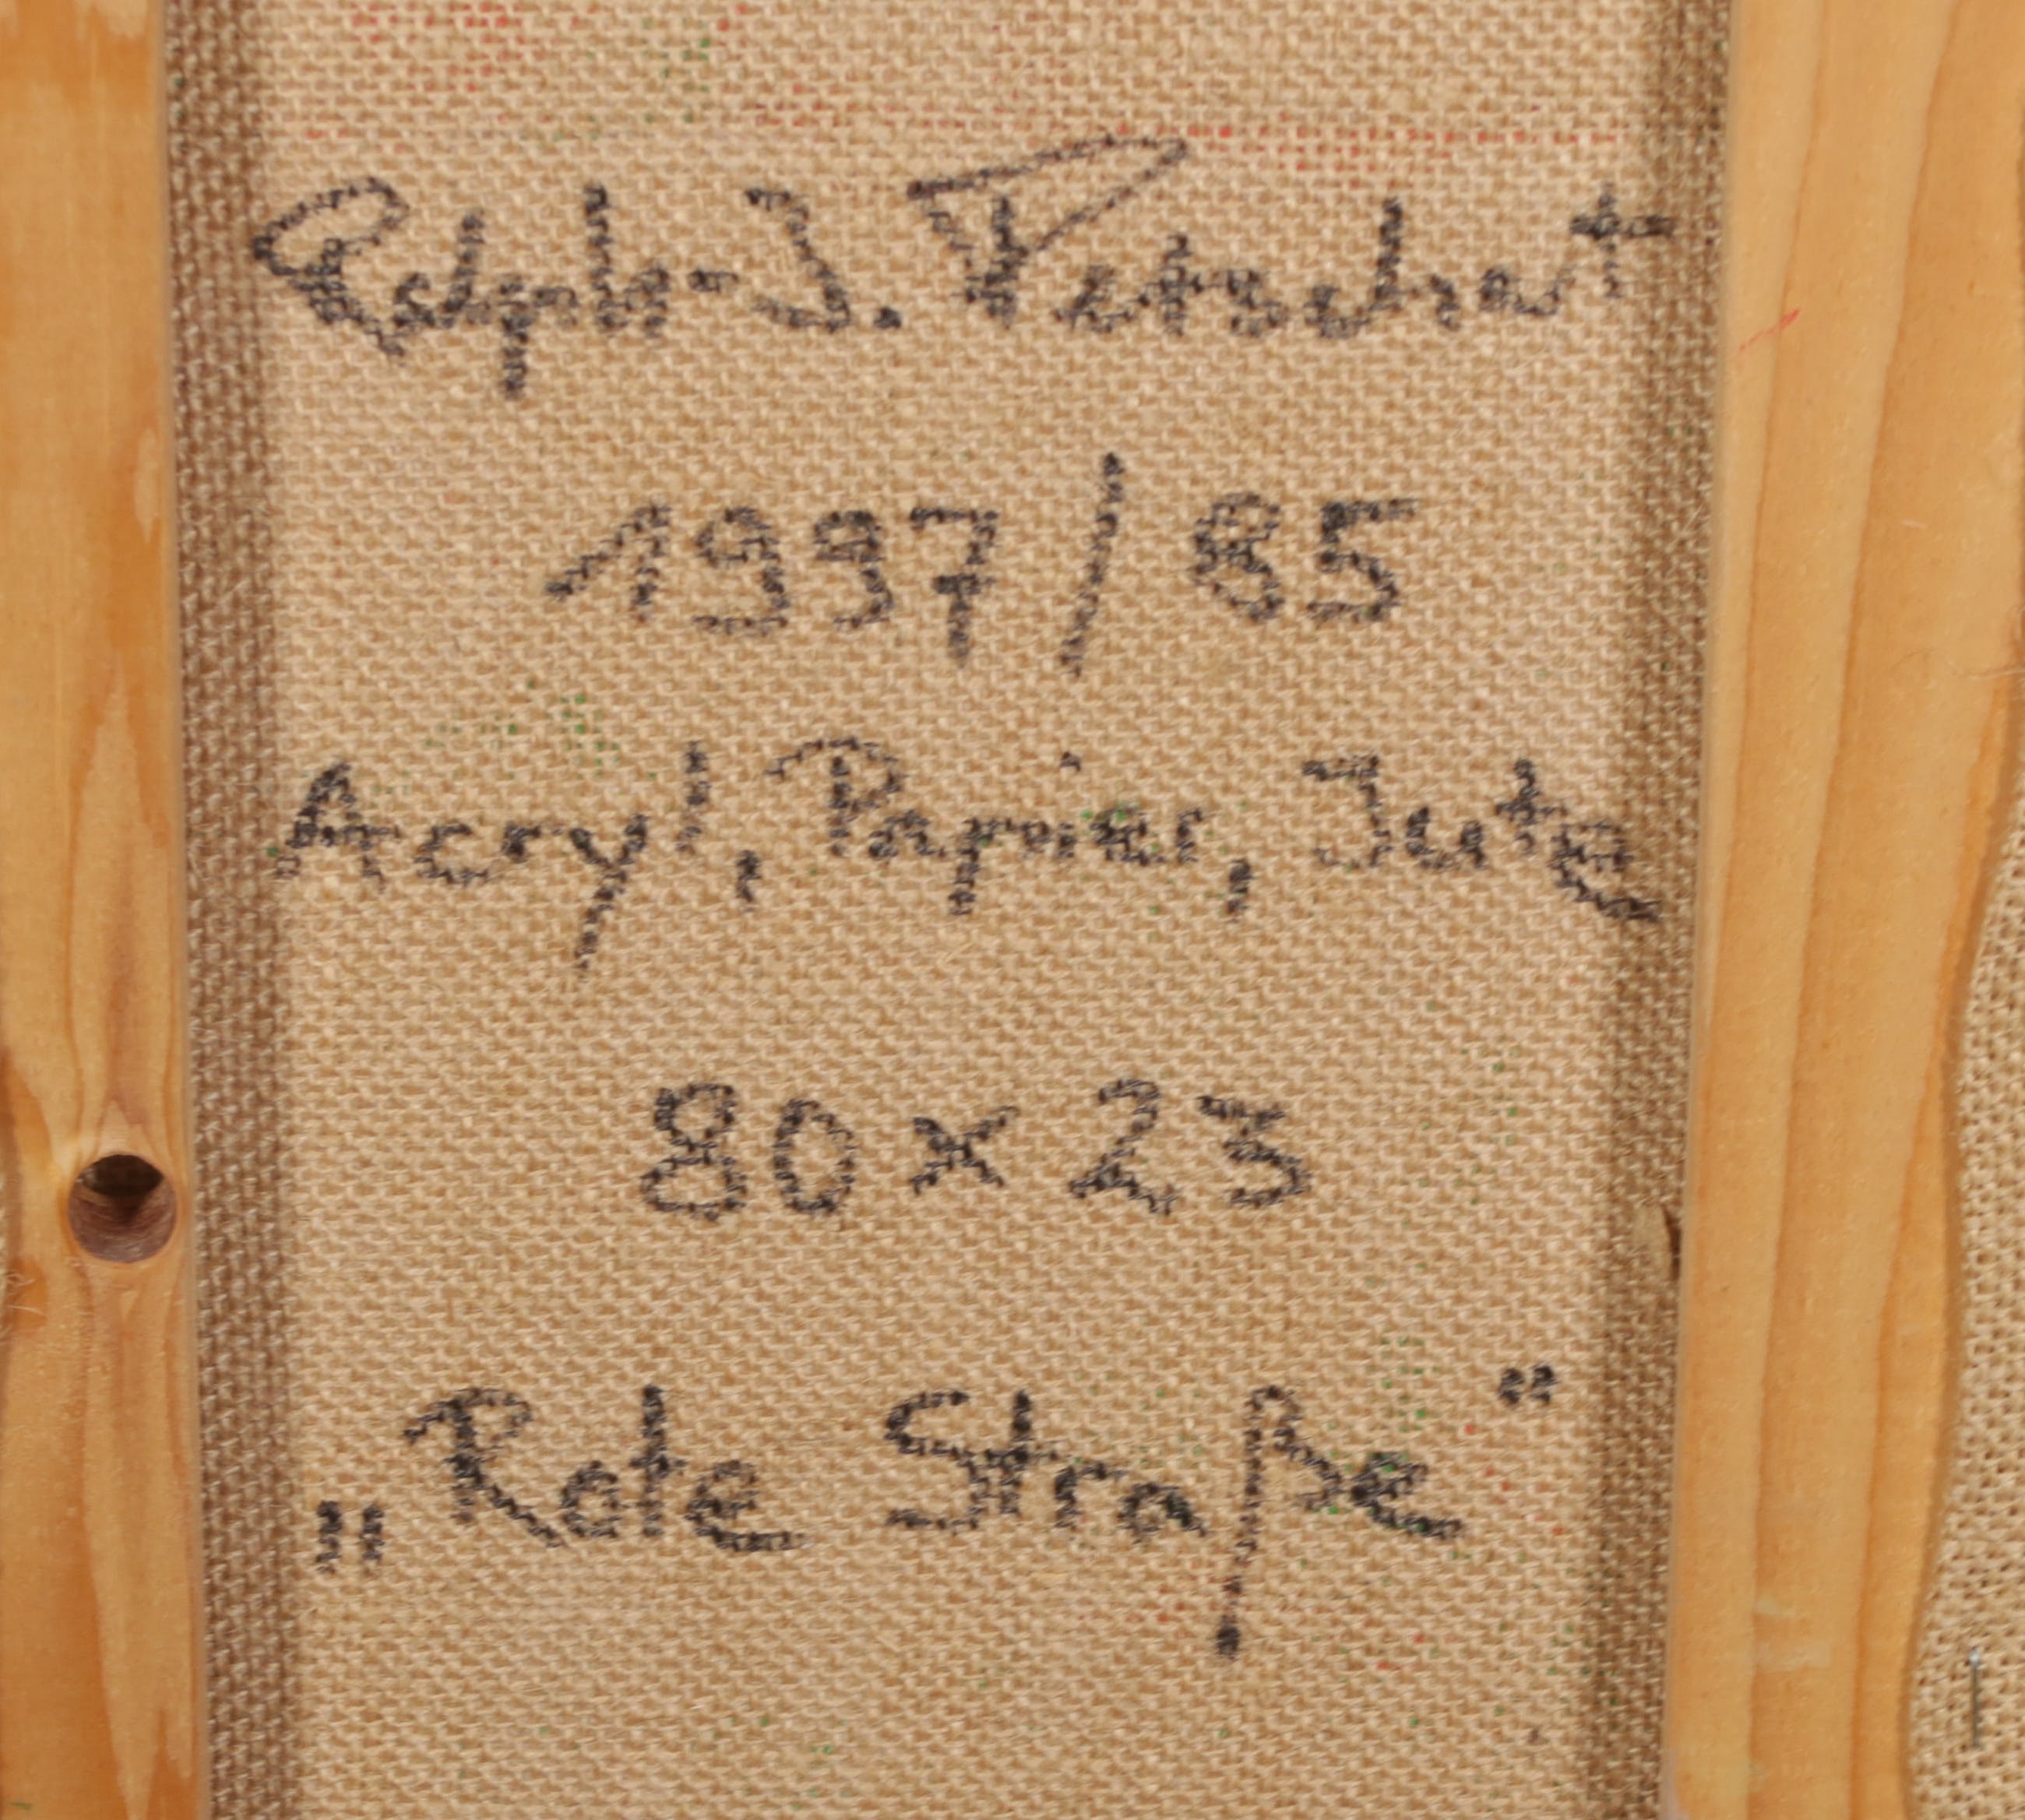 Ralph-J. Petschat
1997/85
Acryl, Papier, Jute
80 x 23
„Rote Straße“